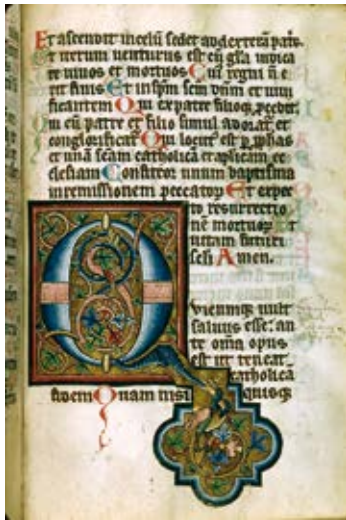 Et ascendit in celū sedet ad dexterā patris
Et iterum venturus est cū gla iudica
re vivos et mortuos Cui regni n̄ e
rit finis Et in spm̄ scm̄ dn̄m et vivi
ficantem Qui ex patre filioq; pcedit
Qui cū patre et filio simul adorat̄ et
conglorificat̄ Qui locut' est p pphas
et unā scām catholicā et aplicam ec
clesiam Confiteor unum baptisma
in remissionem peccator Et expec
to resurrectio
nē mortuor Et
vitam futuri
scli Amen.
Quicumq; vult
salvus esse: an
te om̄ia opus
est ut teneat
catholicā
fidem Quam nisi quisq;